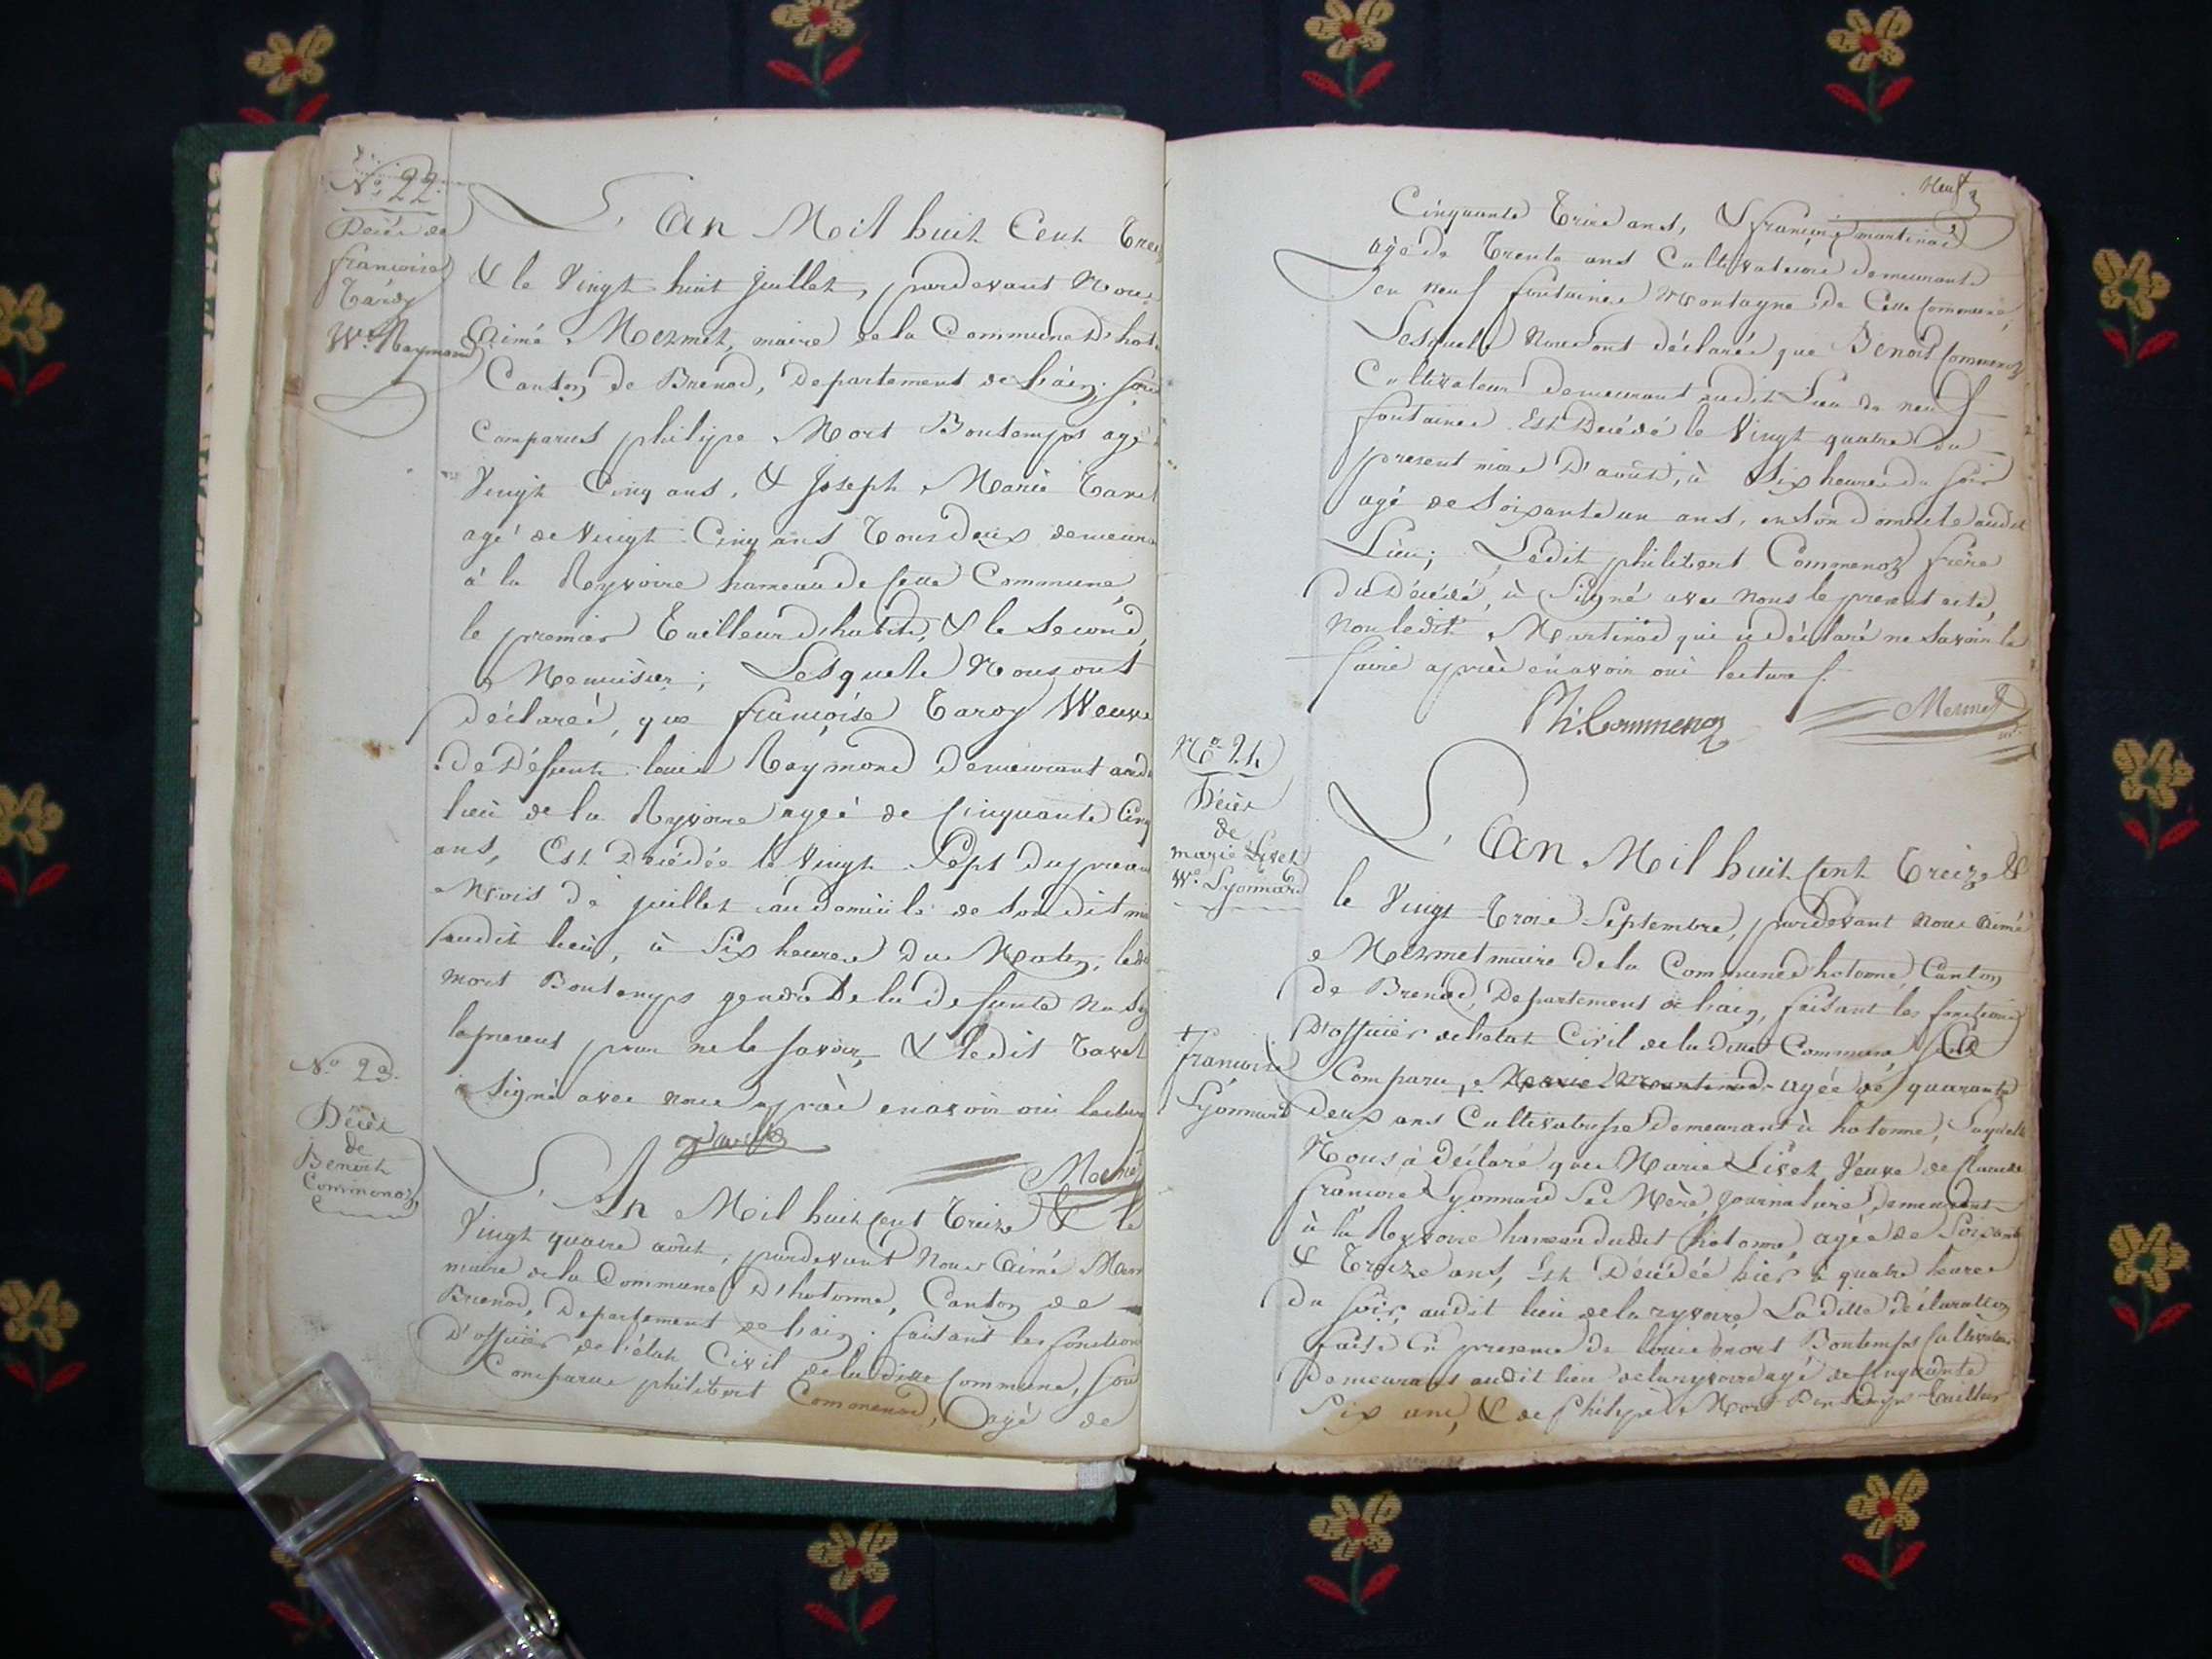 No. 22.
Décès de
françoise
Tardy
We. Raymond
L'An Mil huit Cent Trei
& le Vingt huit juillet, pardevant Nous
Aimé Mermet, maire de la Commune d'hot
Canton de Brenod, Departement de l'ain, sont
Comparus philipe Mort Bontemps agé
Vingt Cinq ans, & Joseph Marie Tavel
agé de Vingt Cinq ans Tous deux demeura
à la Reyvoire hameau de Cette Commune,
le premier Tailleur d'habits, & le Second,
Menuisier; Lesquels Nous ont
déclarés, que françoise Tardy Weuve
de Défunt louis Raymond demeurant audit
lieu de la Ryvoire agéé de Cinquante Cinq
ans, Est Decédée le Vingt Sept du presant
Mois de juillet au domicile de Son dit ma
audit lieu, à Six heures Du Matin, ledit
mort Bontemps gendre de la defunte na Sig
le present pour ne le Savoir, & ledit Tavel
Signé avec nous après en avoir oui lecture
Tavel
Mermet
No. 23.
Décès
de
Benoit
Commenoz
L'An Mil huit Cent Treize & le
Vingt quatre août, pardevant Nous Aimé Mer
maire de la Commune d'hotonne, Canton de
Brenod, Departement de l'ain, faisant les fonction
D'officier de l'état Civil de la ditte Commune, Son
Comparus philibert Commenoz, agé de
Neuf
Cinquante Treize ans, & françois martinod
agé de Trente ans Cultivateurs demeurants
en neuf fontaines Montagne de Cette Commune,
Lesquels Nous ont déclarés que Benoit Commenoz
Cultivateur demeurant audit Lieu de neuf
fontaines Est Decédé le Vingt quatre du
present mois D'août, à Six heures du soir
agé de Soixante un ans, en Son Domicile audit
Lieu; Ledit philibert Commenoz frère
du Décédé, à Signé avec Nous le present acte,
Non ledit Martinod qui a déclaré ne Savoir le
faire après en avoir oui lecture.
Ph. Commenoz
Mermet
No. 24
Décès
de
marie Livet
We. Lyonnard
L'An Mil huit Cent Treize &
le Vingt Trois Septembre, pardevant nous Aimé
Mermet maire de la Commune d'hotonne, Canton
de Brenod, Departement de l'ain, faisant les fonctions
D'officier de l'etat Civil de la ditte Commune
+
françoise
Lyonnard
Comparu, + Marie Martinod agée de quarante
deux ans Cultivatrisse demeurant à hotonne, Laquelle
Nous à déclaré que Marie Livet Veuve de Claude
françois Lyonnard Sa Mère, journaliere, demeurant
à la Reyvoire hameau dudit hotonne, agée de Soixante
& Treize ans, Est Décédée hier à quatre heures
du Soir, audit lieu de la ryvoire La ditte déclaration
faite En presence de louis mort Bontemps Cultivateur
demeurant audit lieu de la ryvoire agé de Cinquante
Six ans, & de Philipe Mort Bontemps Tailleur